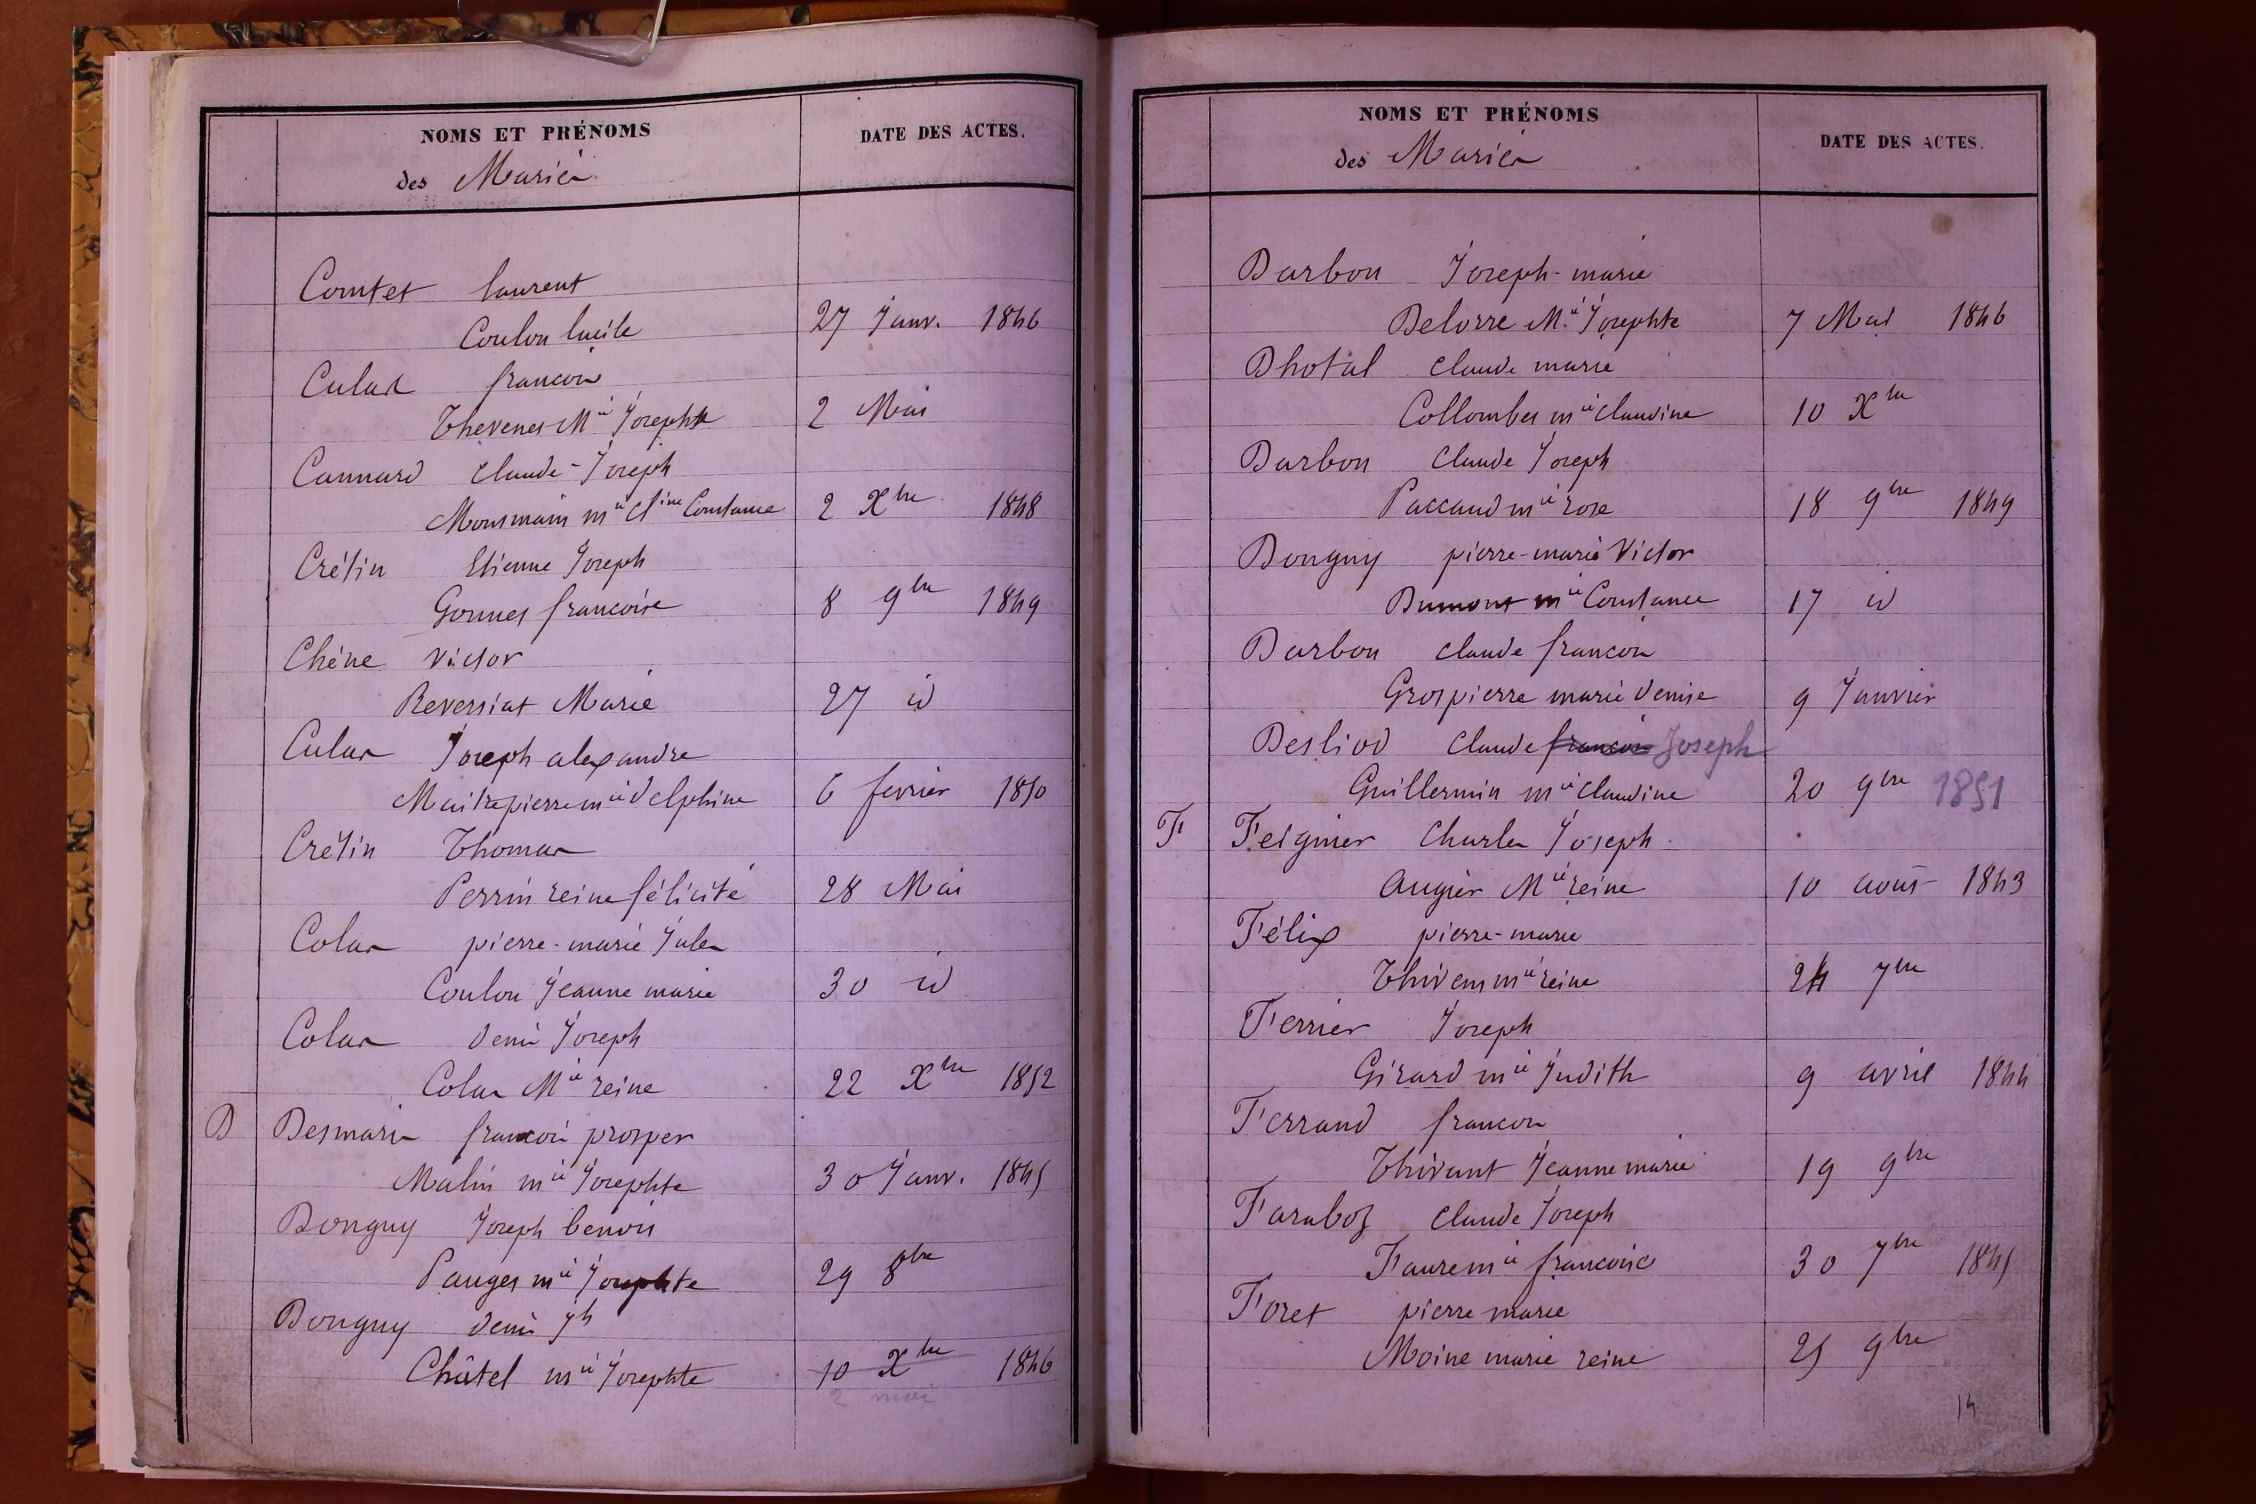 NOMS ET PRÉNOMS
des Mariés
DATE DES ACTES.
Comtet laurent
Coulon lucile 27 Janv. 1846
Culas francois
Thevenes Mie Josephte 2 Mai
Cannard Claude-Joseph
Monsmain mie Cline Constance 2 Xbre 1848
Crétin Etienne Joseph
Gonnes francoise 8 9bre 1849
Chêne Victor
Reversiat Marie 27 id
Culas Joseph alexandre
Maitrepierre mie delphine 6 fevrier 1850
Crétin Thomas
Perrin reine félicité 28 Mai
Colas pierre-marie Jules
Coulon Jeanne marie 30 id
Colas denis Joseph
Colas Mie reine 22 Xbre 1852
D Desmaris francois prosper
Malin mie Josephte 30 Janv. 1845
Donguy Joseph benois
Pauges mie Josephte 29 8bre
Donguy denis Jh
Châtel mie Josephte 10 Xbre 1846
2 mai
NOMS ET PRÉNOMS
des Mariés
DATE DES ACTES.
Darbon Joseph-marie
Delorre Mie Josephte 7 Mai 1846
Dhotal Claude marie
Collombes mie Claudine 10 Xbre
Darbon Claude Joseph
Paccaud mie rose 18 9bre 1849
Donguy pierre-marie Victor
Dumont mie Constance 17 id
Darbon Claude francois
Grospierre marie denise 9 Janvier
Desliod Claude francois Joseph
Guillermin mie Claudine 20 9bre 1851
F Feignier Charles Joseph
Augier Mie reine 10 août 1843
Félix pierre-marie
Thivens mie reine 24 7bre
Ferrier Joseph
Girard mie Judith 9 avril 1844
Ferrand francois
Thivant Jeanne marie 19 9bre
Faraboz Claude Joseph
Faure mie francoise 30 7bre 1845
Foret pierre marie
Moine marie reine 25 9bre
14